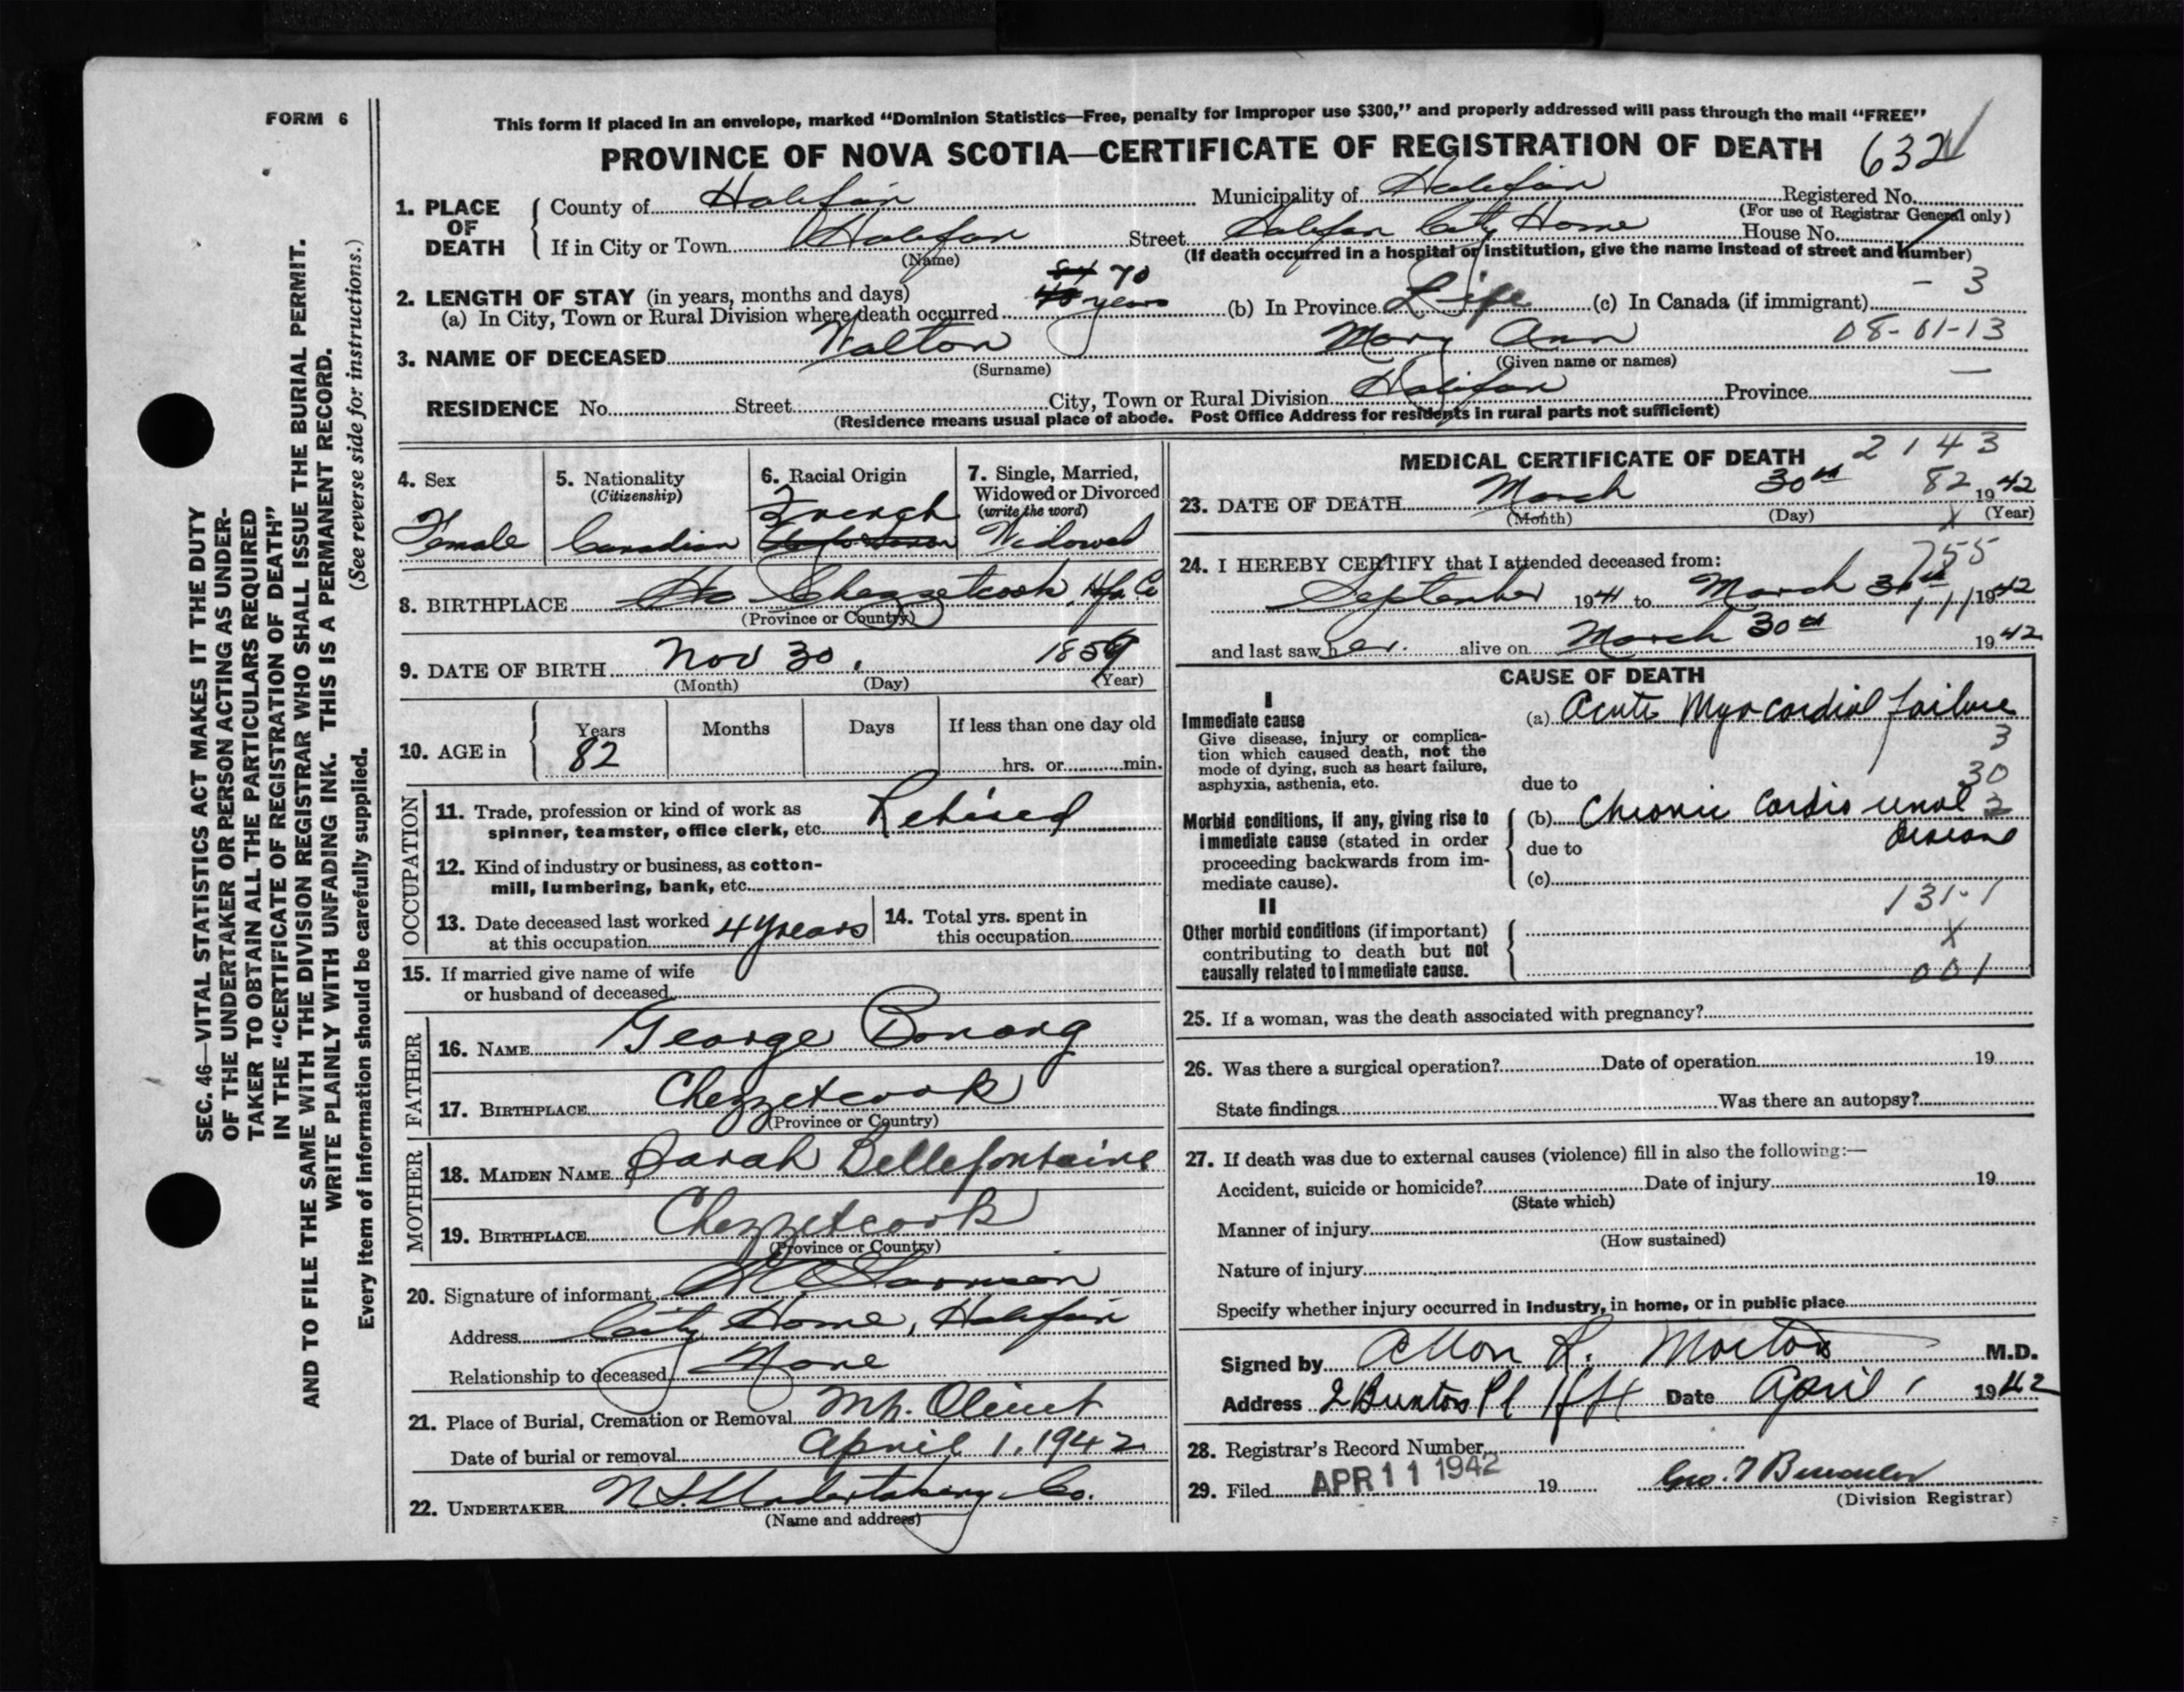 FORM 6
This form if placed in an envelope, marked “Dominion Statistics—Free, penalty for improper use $300,” and properly addressed will pass through the mail “FREE”
PROVINCE OF NOVA SCOTIA—CERTIFICATE OF REGISTRATION OF DEATH 632
1. PLACE OF DEATH County of Halifax Municipality of Halifax Registered No.
(For use of Registrar General only)
If in City or Town Halifax Street Halifax City Home House No.
(Name) (If death occurred in a hospital or institution, give the name instead of street and number)
2. LENGTH OF STAY (in years, months and days) 70
(a) In City, Town or Rural Division where death occurred years (b) In Province Life (c) In Canada (if immigrant) - 3
3. NAME OF DECEASED Walton Mary Ann 08-01-13
(Surname) (Given name or names)
RESIDENCE No. Street City, Town or Rural Division Halifax Province
(Residence means usual place of abode. Post Office Address for residents in rural parts not sufficient)
4. Sex Female
5. Nationality (Citizenship) Canadian
6. Racial Origin French
7. Single, Married, Widowed or Divorced (write the word) Widowed
8. BIRTHPLACE Chezzetcook, Hfx Co
(Province or Country)
9. DATE OF BIRTH Nov 30, 1859
(Month) (Day) (Year)
10. AGE in Years 82 Months Days If less than one day old
hrs. or min.
OCCUPATION
11. Trade, profession or kind of work as
spinner, teamster, office clerk, etc. Retired
12. Kind of industry or business, as cotton-
mill, lumbering, bank, etc.
13. Date deceased last worked
at this occupation 4 years
14. Total yrs. spent in
this occupation
15. If married give name of wife
or husband of deceased
FATHER
16. NAME George Bonang
17. BIRTHPLACE Chezzetcook
(Province or Country)
MOTHER
18. MAIDEN NAME Sarah Bellefontaine
19. BIRTHPLACE Chezzetcook
(Province or Country)
20. Signature of informant
Address City Home, Halifax
Relationship to deceased None
21. Place of Burial, Cremation or Removal Mt. Olivet
Date of burial or removal April 1, 1942
22. UNDERTAKER N.S. Undertaking Co.
(Name and address)
MEDICAL CERTIFICATE OF DEATH 2143
23. DATE OF DEATH March 30th 82 1942
(Month) (Day) (Year)
X
24. I HEREBY CERTIFY that I attended deceased from: 755
September 1941 to March 30th 1942
and last saw her alive on March 30th 1942
CAUSE OF DEATH
I
Immediate cause (a) Acute Myocardial failure
Give disease, injury or complica-
tion which caused death, not the
mode of dying, such as heart failure,
asphyxia, asthenia, etc. due to
3
30
2
Morbid conditions, if any, giving rise to
immediate cause (stated in order
proceeding backwards from im-
mediate cause).
(b) Chronic Cardio renal
disease
due to
(c)
131-1
II
Other morbid conditions (if important)
contributing to death but not
causally related to immediate cause.
X
001
25. If a woman, was the death associated with pregnancy?
26. Was there a surgical operation? Date of operation 19
State findings Was there an autopsy?
27. If death was due to external causes (violence) fill in also the following:—
Accident, suicide or homicide? Date of injury 19
(State which)
Manner of injury
(How sustained)
Nature of injury
Specify whether injury occurred in industry, in home, or in public place
Signed by Allon R. Morton M.D.
Address Date April 1 1942
28. Registrar's Record Number
29. Filed APR 11 1942 19 Geo.
(Division Registrar)
SEC. 46—VITAL STATISTICS ACT MAKES IT THE DUTY
OF THE UNDERTAKER OR PERSON ACTING AS UNDER-
TAKER TO OBTAIN ALL THE PARTICULARS REQUIRED
IN THE “CERTIFICATE OF REGISTRATION OF DEATH”
AND TO FILE THE SAME WITH THE DIVISION REGISTRAR WHO SHALL ISSUE THE BURIAL PERMIT.
WRITE PLAINLY WITH UNFADING INK. THIS IS A PERMANENT RECORD.
Every item of information should be carefully supplied. (See reverse side for instructions.)